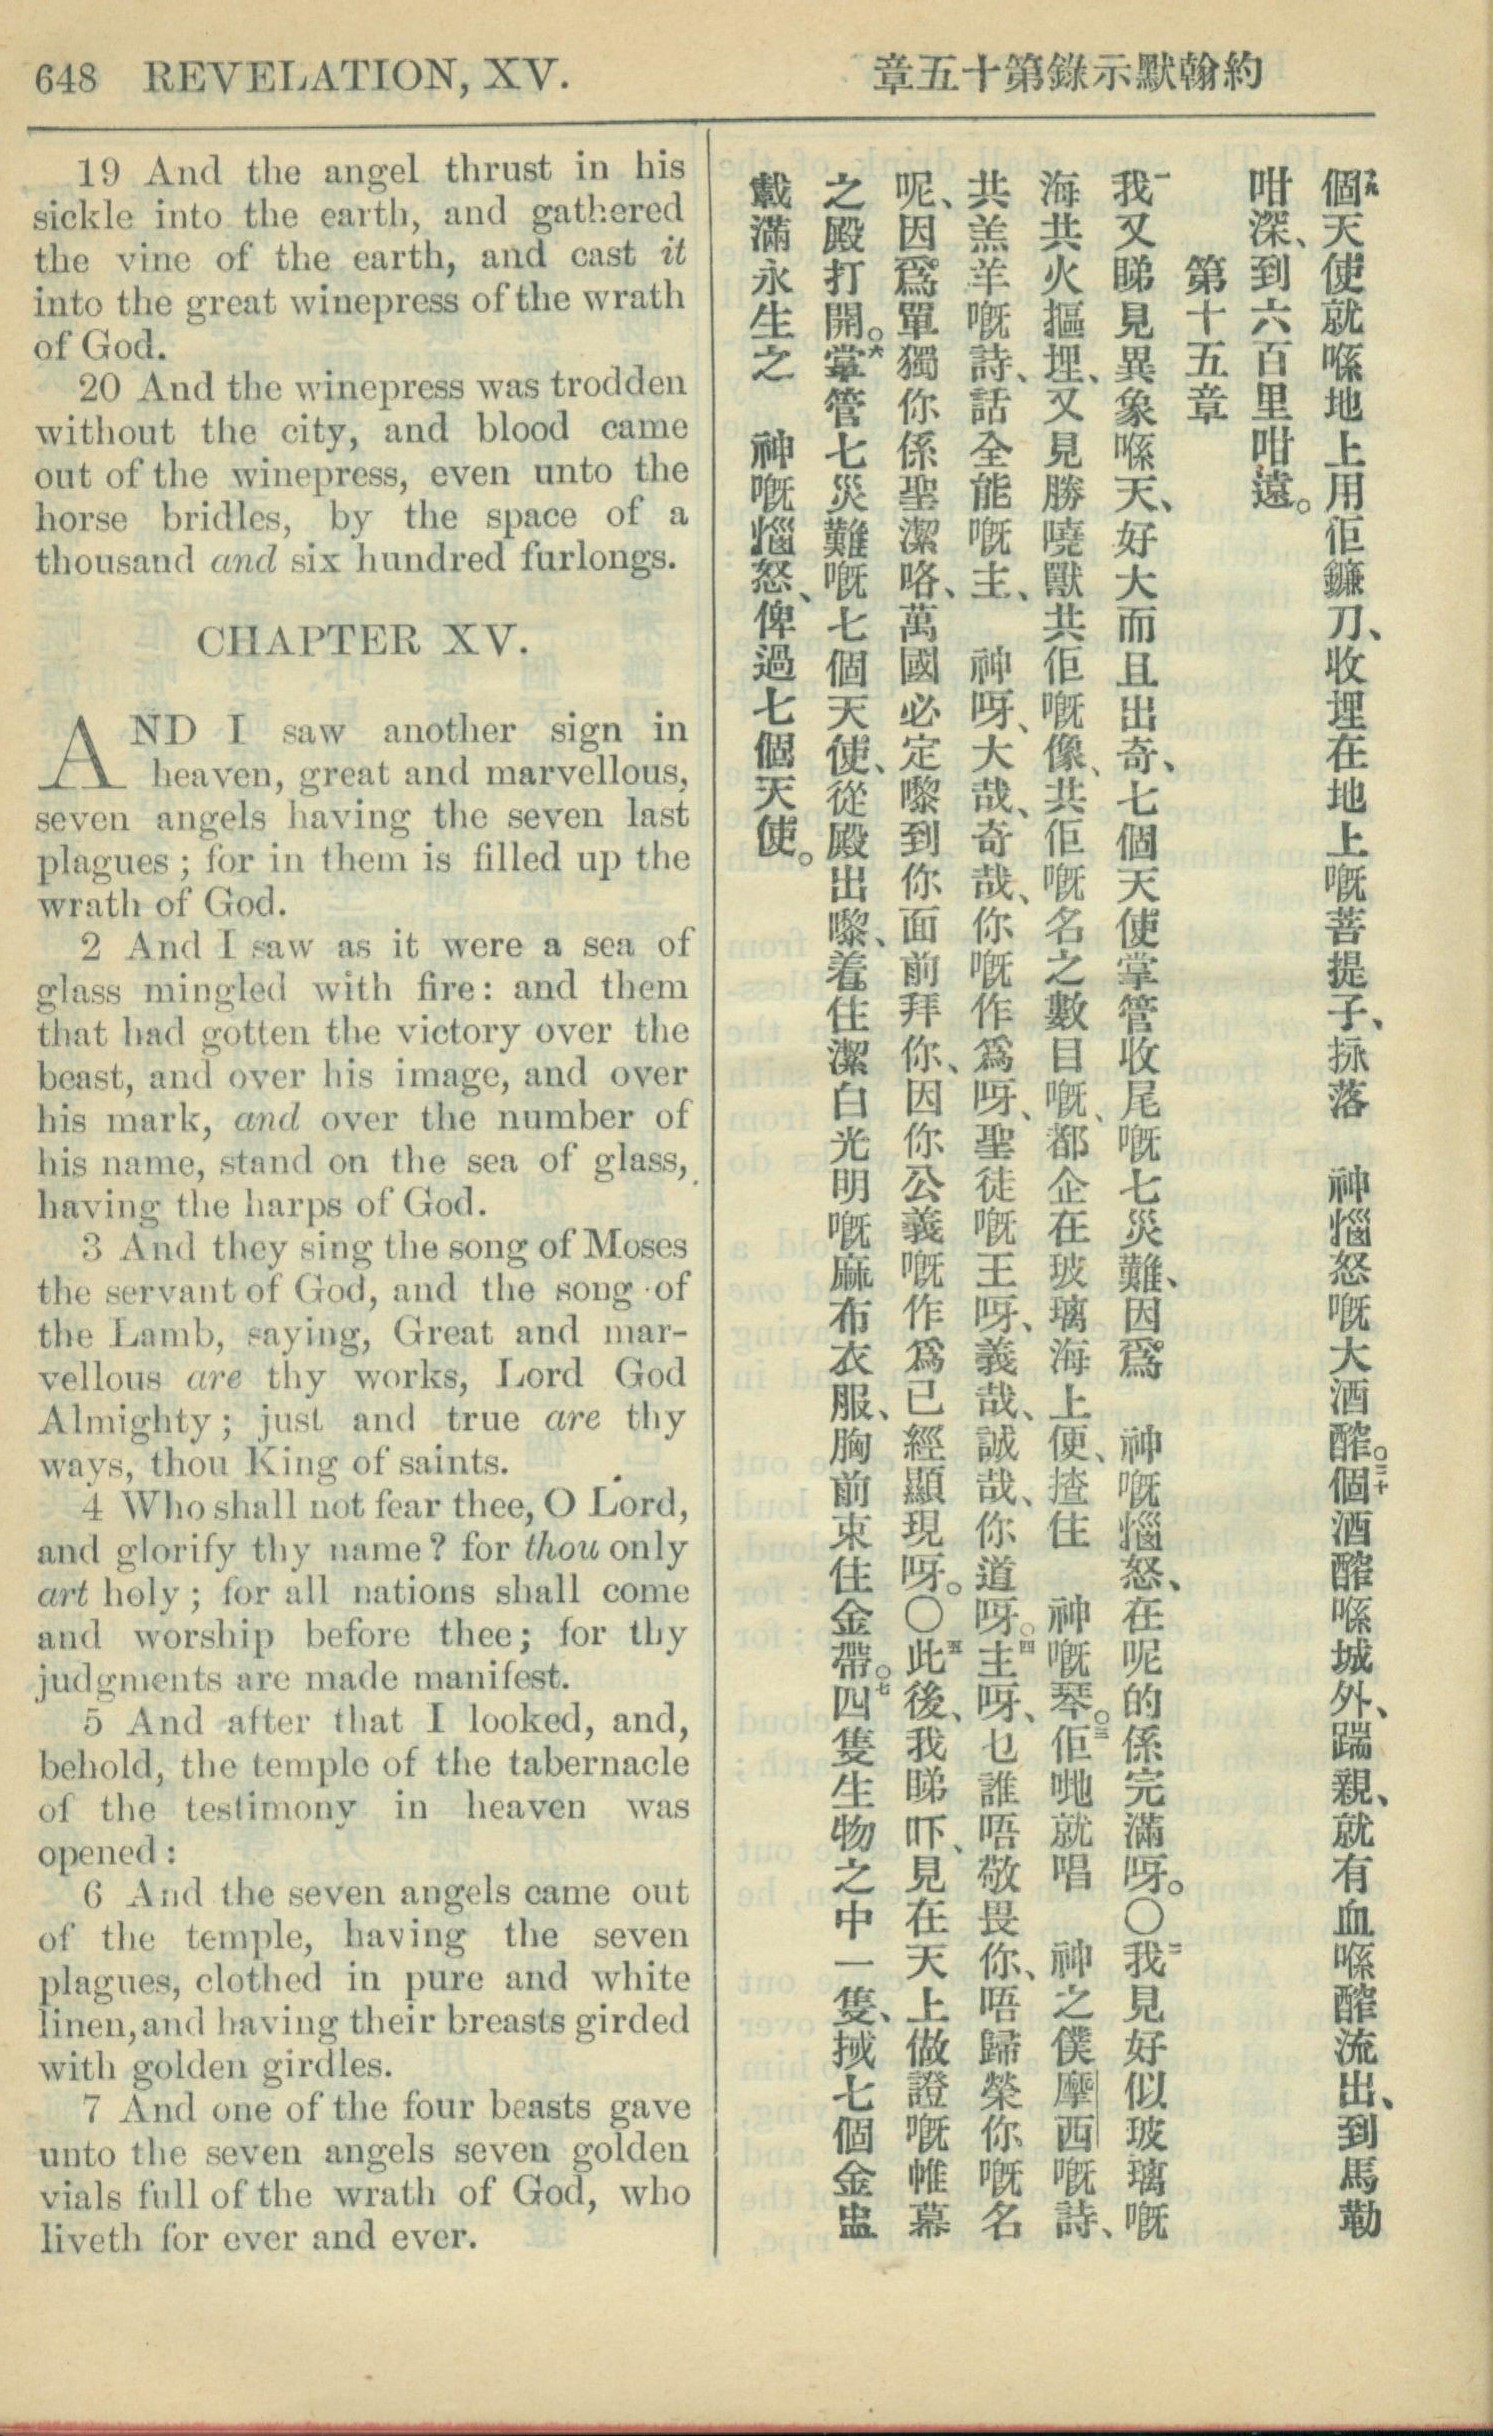 648 REVELATION, XV.
19 And the angel thrust in his
sickle into the earth, and gathered
the vine of the earth, and cast it
into the great winepress of the wrath
of God.
20 And the winepress was trodden
without the city, and blood came
out of the winepress, even unto the
horse bridles, by the space of a
thousand and six hundred furlongs.
CHAPTER XV.
AND I saw another sign in
heaven, great and marvellous,
seven angels having the seven last
plagues; for in them is filled up the
wrath of God.
2 And I saw as it were a sea of
glass mingled with fire: and them
that had gotten the victory over the
beast, and over his image, and over
his mark, and over the number of
his name, stand on the sea of glass,
having the harps of God.
3 And they sing the song of Moses
the servant of God, and the song of
the Lamb, saying, Great and mar-
vellous are thy works, Lord God
Almighty; just and true are thy
ways, thou King of saints.
4 Who shall not fear thee, O Lord,
and glorify thy name? for thou only
art holy; for all nations shall come
and worship before thee; for thy
judgments are made manifest.
5 And after that I looked, and,
behold, the temple of the tabernacle
of the testimony in heaven was
opened:
6 And the seven angels came out
of the temple, having the seven
plagues, clothed in pure and white
linen, and having their breasts girded
with golden girdles.
7 And one of the four beasts gave
unto the seven angels seven golden
vials full of the wrath of God, who
liveth for ever and ever.
約翰默示錄第十五章
十九個天使就喺地上用佢鐮刀、收埋在地上嘅菩提子、捹落　神惱怒嘅大酒醡。二十個酒醡喺城外、踹親、就有血喺醡流出、到馬勒
咁深、到六百里咁遠。
第十五章
一我又睇見異象喺天、好大而且出奇、七個天使掌管收尾嘅七災難、因爲　神嘅惱怒、在呢的係完滿呀。〇二我見好似玻璃嘅
海共火摳埋、又見勝嘵獸共佢嘅像、共佢嘅名之數目嘅、都企在玻璃海上便、揸住　神嘅琴。三佢哋就唱　神之僕摩西嘅詩、
共羔羊嘅詩、話全能嘅主、　神呀、大哉、奇哉、你嘅作爲呀、聖徒嘅王呀、義哉、誠哉、你道呀。四主呀、乜誰唔敬畏你、唔歸榮你嘅名
呢、因爲單獨你係聖潔咯、萬國必定嚟到你面前拜你、因你公義嘅作爲已經顯現呀。〇五此後、我睇吓、見在天上做證嘅帷幕
之殿打開。六掌管七災難嘅七個天使、從殿出嚟、着住潔白光明嘅麻布衣服、胸前束住金帶。七四隻生物之中一隻、搣七個金盅
載滿永生之　神嘅惱怒、俾過七個天使。